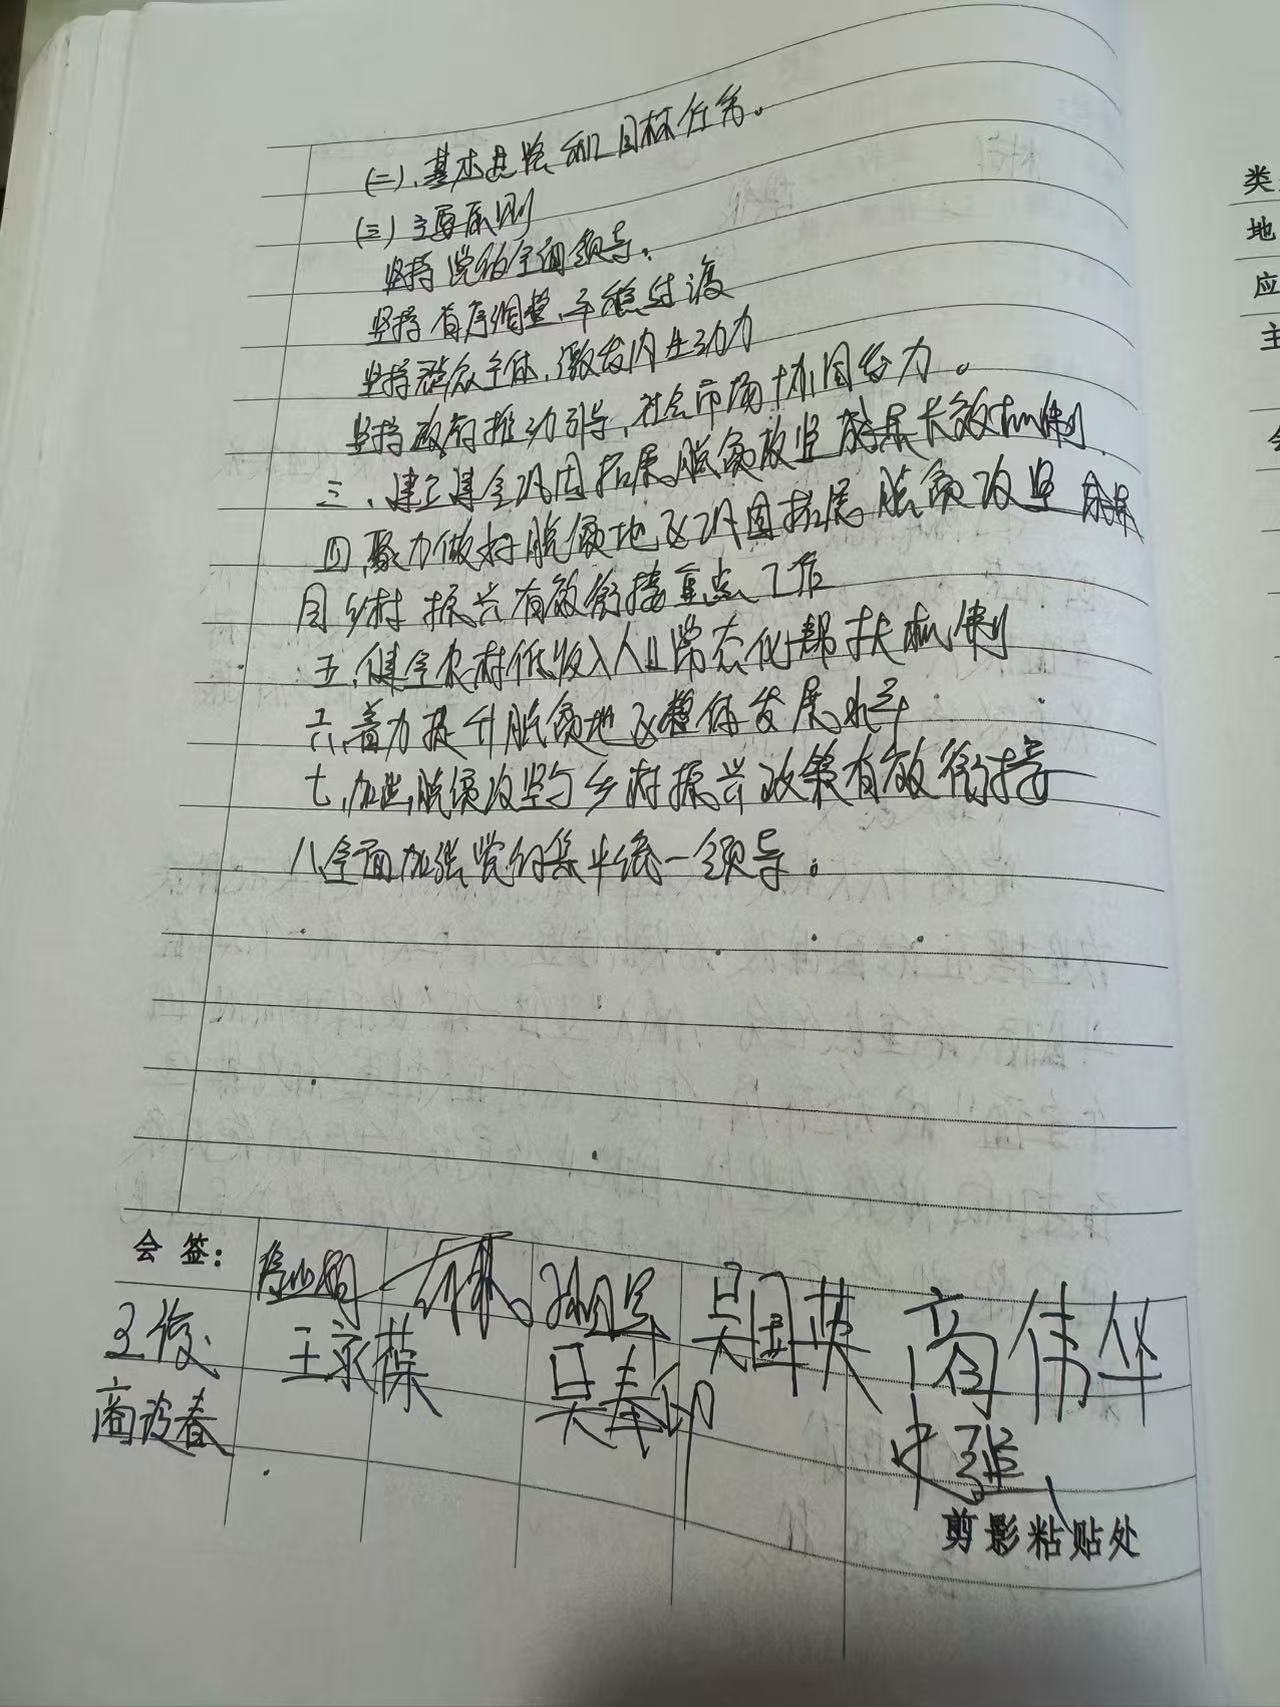 (二)、基本思路和目标任务。
(三)主要原则
坚持党的全面领导。
坚持有序调整、平稳过渡
坚持群众主体、激发内生动力
坚持政府推动引导、社会市场协同发力。
三、建立健全巩固拓展脱贫攻坚成果长效机制
四、聚力做好脱贫地区巩固拓展脱贫攻坚成果
同乡村振兴有效衔接重点工作
五、健全农村低收入人口常态化帮扶机制
六、着力提升脱贫地区整体发展水平
七、加强脱贫攻坚与乡村振兴政策有效衔接
八全面加强党的集中统一领导。
会签:
吴国英 商伟华
王俊 王永葆 吴奉印
商设春 史强
剪影粘贴处
类
地
应
主